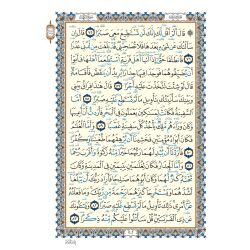 قَالَ أَلَمْ أَقُل لَّكَ إِنَّكَ لَن تَسْتَطِيعَ مَعِيَ صَبْرًا ٧٥ قَالَ إِن
سَأَلْتُكَ عَن شَيْءٍ بَعْدَهَا فَلَا تُصَاحِبْنِي قَدْ بَلَغْتَ مِن لَّدُنِّي عُذْرًا
٧٦ فَانطَلَقَا حَتَّىٰ إِذَا أَتَيَا أَهْلَ قَرْيَةٍ اسْتَطْعَمَا أَهْلَهَا فَأَبَوْا
أَن يُضَيِّفُوهُمَا فَوَجَدَا فِيهَا جِدَارًا يُرِيدُ أَن يَنقَضَّ فَأَقَامَهُ
قَالَ لَوْ شِئْتَ لَتَّخَذْتَ عَلَيْهِ أَجْرًا ٧٧ قَالَ هَٰذَا فِرَاقُ بَيْنِي
وَبَيْنِكَ سَأُنَبِّئُكَ بِتَأْوِيلِ مَا لَمْ تَسْتَطِع عَّلَيْهِ صَبْرًا ٧٨
أَمَّا السَّفِينَةُ فَكَانَتْ لِمَسَاكِينَ يَعْمَلُونَ فِي الْبَحْرِ فَأَرَدتُّ أَنْ أَعِيبَهَا
وَكَانَ وَرَاءَهُم مَّلِكٌ يَأْخُذُ كُلَّ سَفِينَةٍ غَصْبًا ٧٩ وَأَمَّا الْغُلَامُ
فَكَانَ أَبَوَاهُ مُؤْمِنَيْنِ فَخَشِينَا أَن يُرْهِقَهُمَا طُغْيَانًا وَكُفْرًا ٨٠
فَأَرَدْنَا أَن يُبْدِلَهُمَا رَبُّهُمَا خَيْرًا مِّنْهُ زَكَاةً وَأَقْرَبَ رُحْمًا ٨١
وَأَمَّا الْجِدَارُ فَكَانَ لِغُلَامَيْنِ يَتِيمَيْنِ فِي الْمَدِينَةِ وَكَانَ
تَحْتَهُ كَنزٌ لَّهُمَا وَكَانَ أَبُوهُمَا صَالِحًا فَأَرَادَ رَبُّكَ أَن يَبْلُغَا
أَشُدَّهُمَا وَيَسْتَخْرِجَا كَنزَهُمَا رَحْمَةً مِّن رَّبِّكَ وَمَا فَعَلْتُهُ
عَنْ أَمْرِي ذَٰلِكَ تَأْوِيلُ مَا لَمْ تَسْطِع عَّلَيْهِ صَبْرًا ٨٢ وَيَسْأَلُونَكَ
عَن ذِي الْقَرْنَيْنِ قُلْ سَأَتْلُو عَلَيْكُم مِّنْهُ ذِكْرًا ٨٣